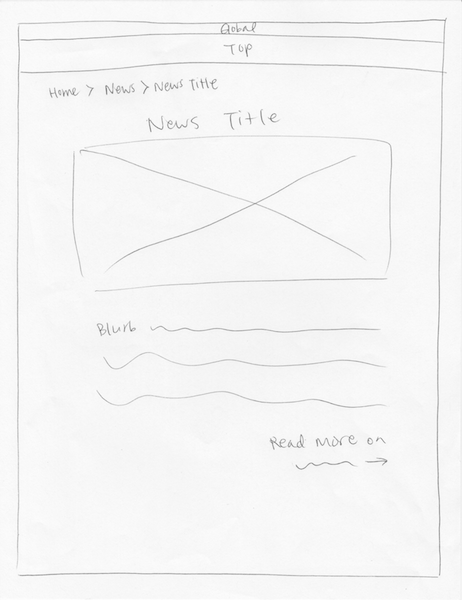 Global
Top
Home > News > News Title
News Title
Blurb
Read More on
→